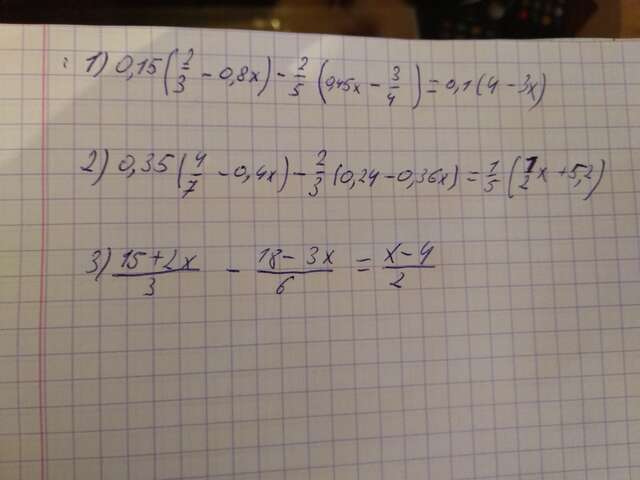 1) 0,15(2/3 - 0,8x) - 2/5(0,45x - 3/4) = 0,1(4 - 3x)
2) 0,35(4/7 - 0,4x) - 2/3(0,24 - 0,36x) = 1/5(1/2x + 5,2)
3) 15+2x/3 - 18-3x/6 = x-4/2